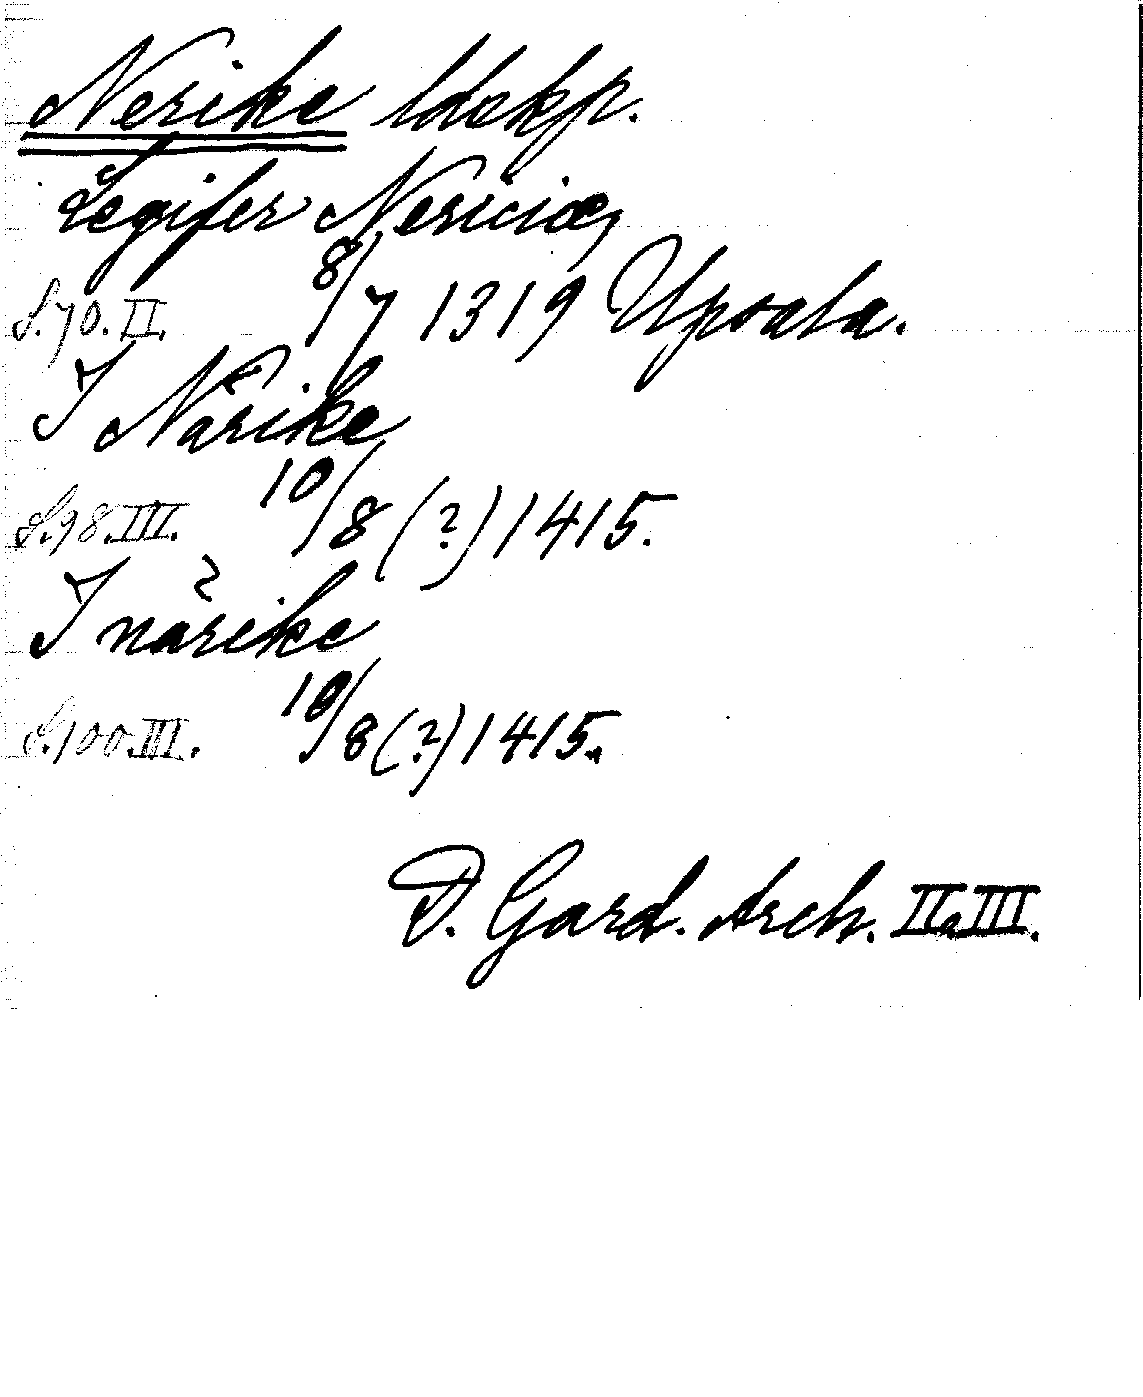 Nerike ldskp.
Legifer Nericiæ,
S. 70. II. 8/7 1319 Upsala.
I Närike
S. 98. III. 10/8 (?) 1415.
I närike
S. 100. III. 10/8 (?) 1415.
D. Gard. Arch. II. III.